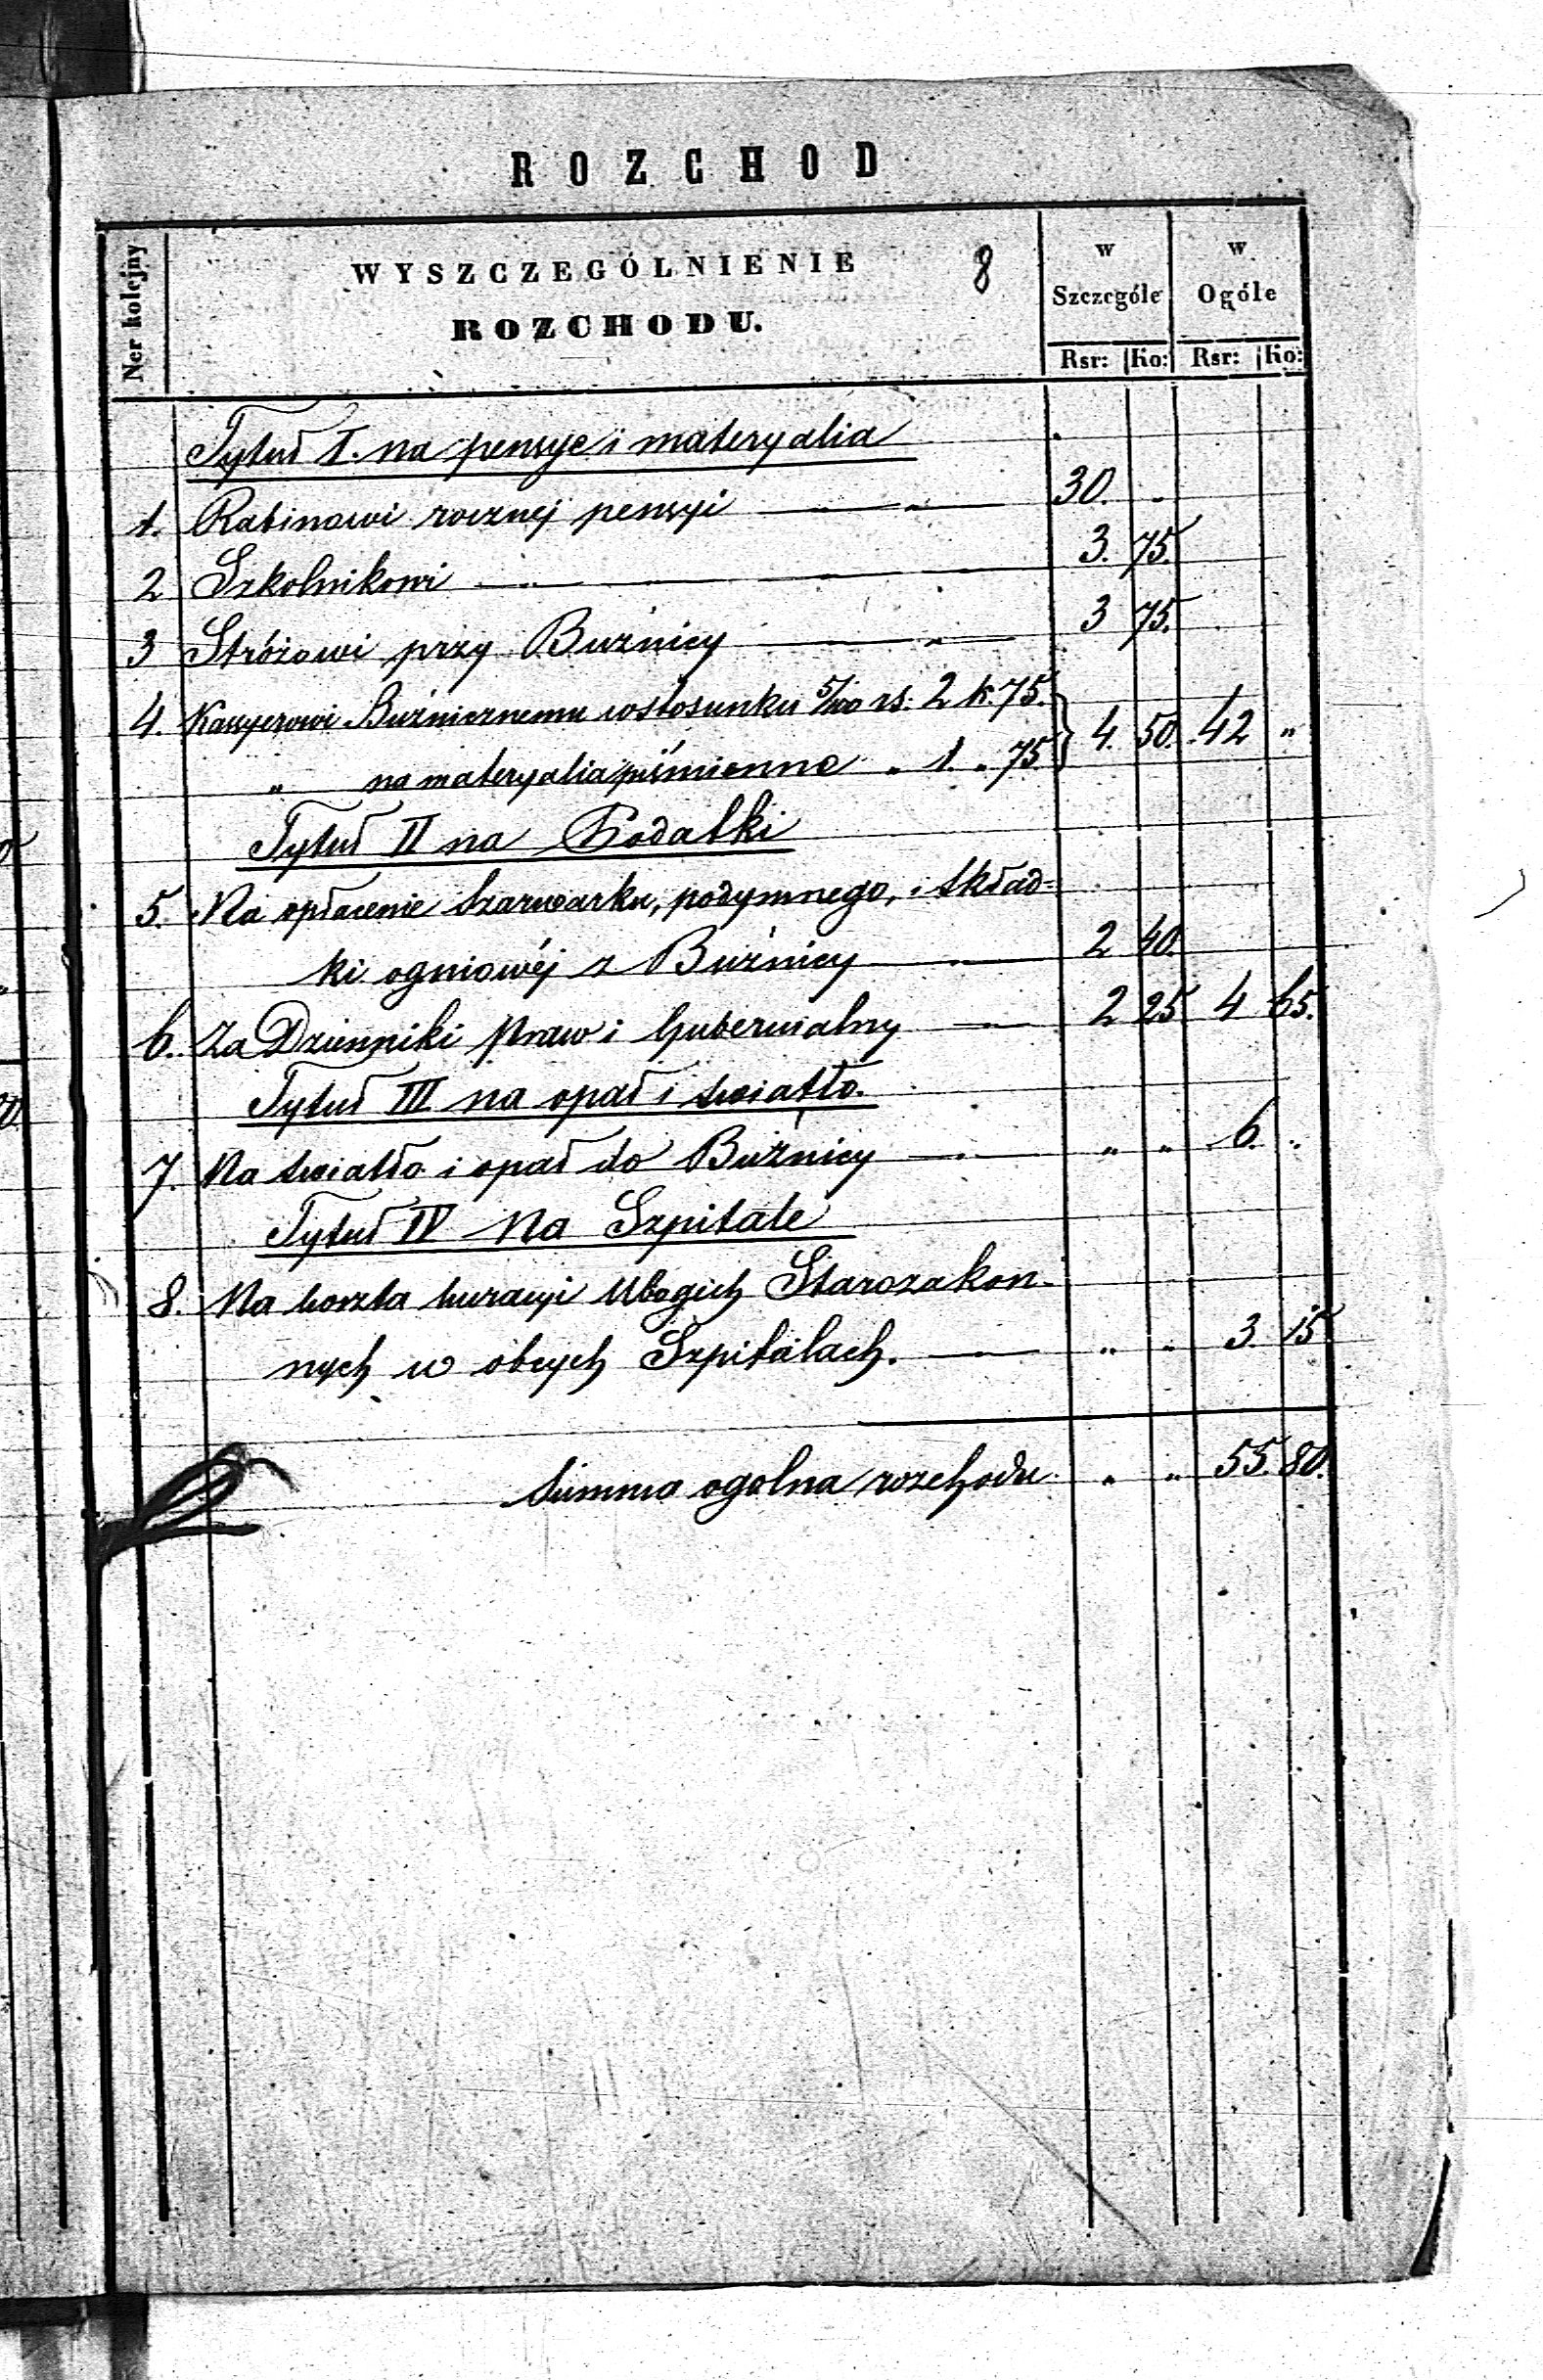 ROZCHOD
Ner kolejny
WYSZCZEGÓLNIENIE
ROZCHODU.
8
w Szczególe
w Ogóle
Rsr: Ko: Rsr: Ko:
Tytuł I. na pensye i materyalia
1. Rabinowi rocznej pensyi — " — 30. "
2 Szkolnikowi — " — 3. 75.
3 Stróżowi przy Bużnicy — " — 3 75.
4. Kassyerowi Bużnicznemu wstosunku 5/100 rs. 2 k. 75. } 4. 50. 42 "
" na materyalia piśmienne " 1. " 75
Tytuł II na Podatki
5. Na opłacenie szarwarku, podymnego, i skład=
ki ogniowéj z Bużnicy — " — 2 40.
6. Za Dzienniki Praw i Gubernialny — " — 2 25 4 65.
Tytuł III na opał i swiatło.
7. Na swiatło i opał do Bużnicy — " — " " 6. "
Tytuł IV Na Szpitale
8. Na koszta kuracyi Ubogich Starozakon-
nych w obcych Szpitalach. — " — " " 3. 15
Summa ogolna rozchodu. " " 55. 80.